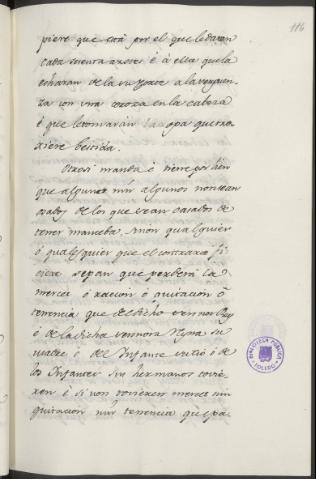 116
piere que está por el que le daran
cada sesenta azotes è à ella que la
echaran de la vergüen
za con una coroza en la cabeza
è que le tomarán la ropa que tra
xiere bestida.
Otrosi manda è tiene por bien
que algunos nin algunos non sean
osados de los que eran casados de
tener manceba, è non qualquier
ò qualesquier que el contrario fi
ciere sepan que perderá la
merced ò racion ò quitacion ò
tenencia que de dicho Señor Rey
ò de la dicha Señora Reyna su
madre è del Infante ò de
los Infantes sus hermanos tovie
ren è si non tovieren merced nin
quitacion nin tenencia que pa
BIBLIOTECA PUBLICA
TOLEDO